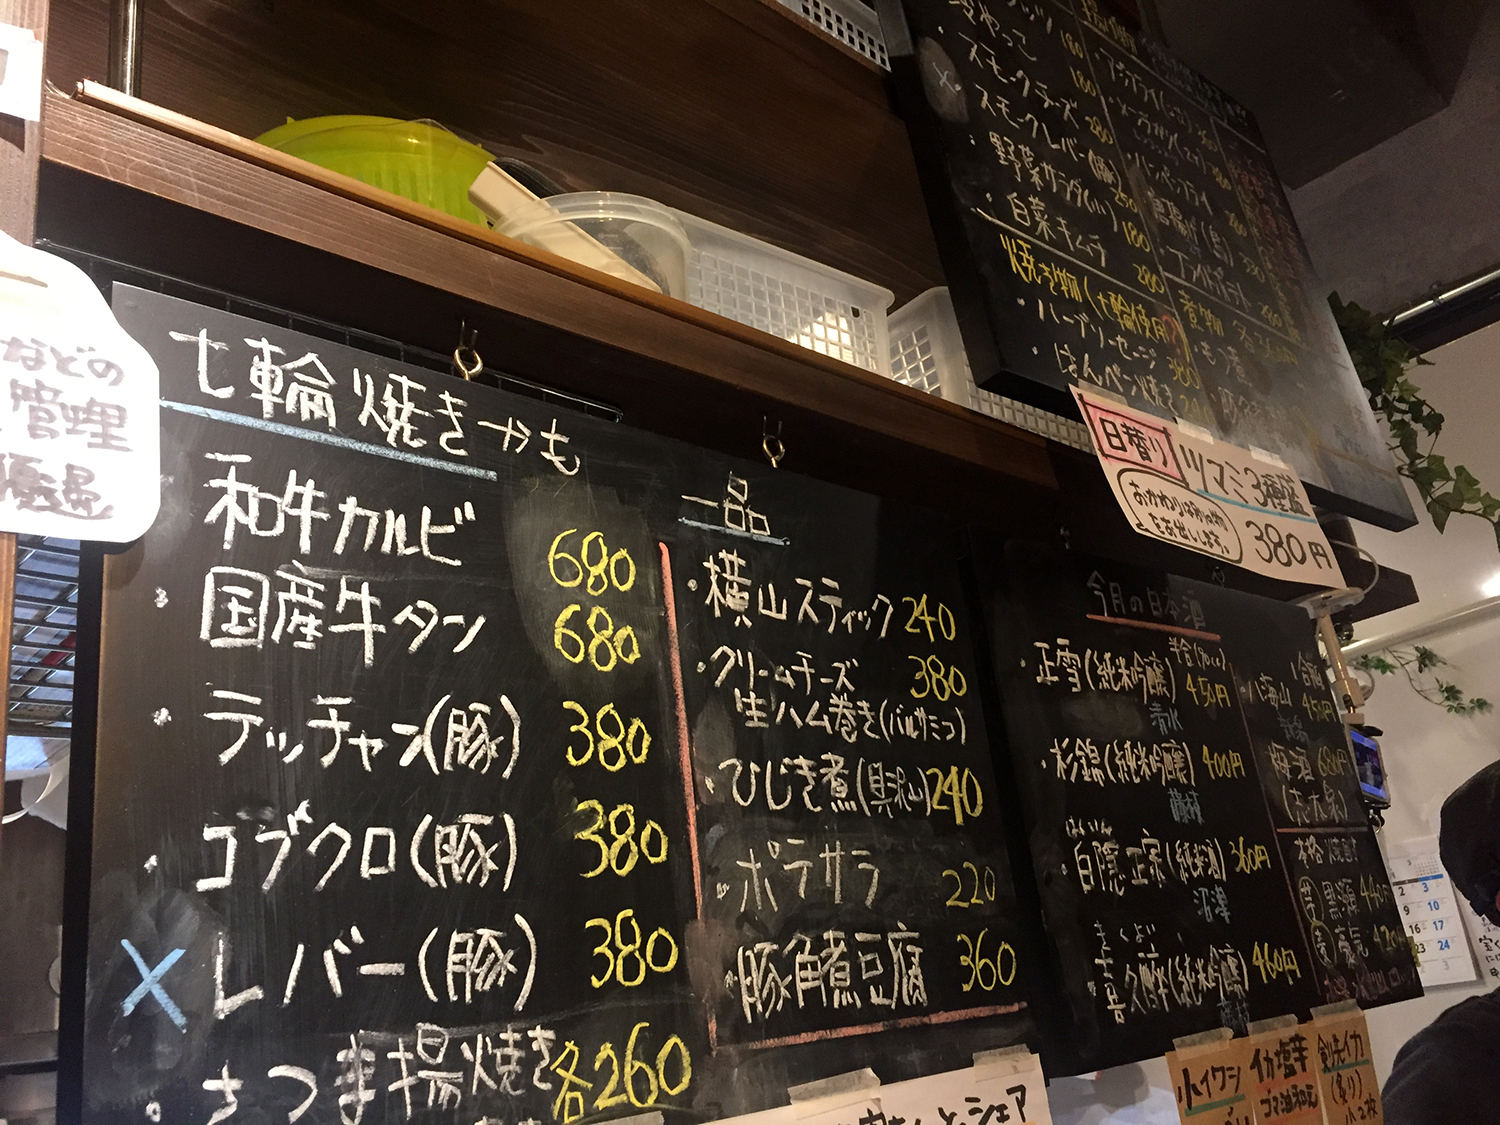 などの
管理
七輪焼きつかも
和牛カルビ 680
国産牛タン 680
テッチャン(豚) 380
コブクロ(豚) 380
×レバー(豚) 380
さつま揚焼き各260
一品
横山スティック 240
クリームチーズ 380
生ハム巻き(バルサミコ)
ひじき煮(具沢山) 240
ポテサラ 220
豚角煮豆腐 360
冷やっこ 180
スモークチーズ 180
×スモークレバー(豚) 280
野菜サラダ(小) 250
白菜キムチ 180
280
焼き物(七輪使用)
ハーブソーセージ 380
はんぺん焼き
アジフライ
ハンペンフライ
唐揚げ(鳥)
フライドポテト
煮物
モツ煮
日替り ツマミ3種盛
380円
今月の日本酒
半合(90cc)
正雪(純米吟醸) 450円
清水
杉錦(純米吟醸) 400円
藤枝
はくいん
白隠正宗(純米酒) 360円
沼津
きくよい
喜久酔(純米吟醸) 460円
藤枝
八海山 450円
新潟
梅酒 680円
本格焼酎
黒瀬 440円
小イワシ
イカ塩辛
ゴマ油和え
剣先イカ
(炙り)
小2枚
シェア